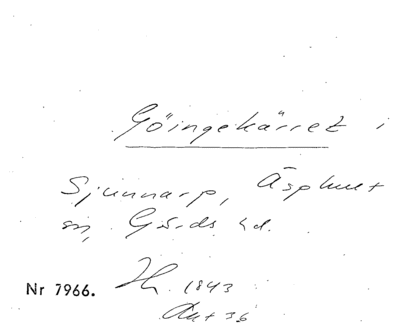 Göingekärret i
Sjunnarp, Äsphult
sn, Gärds hd.
Nr 7966. 1843
36